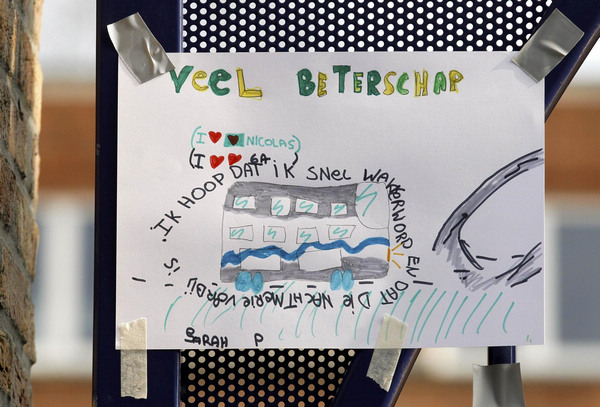 VEEL BETERSCHAP
(I NICOLAS)
(I GA)
.IK HOOP DAT IK SNEL WAKKERWORD EN DAT DIE NACHTMERIE VORBIJ IS
SARAH P